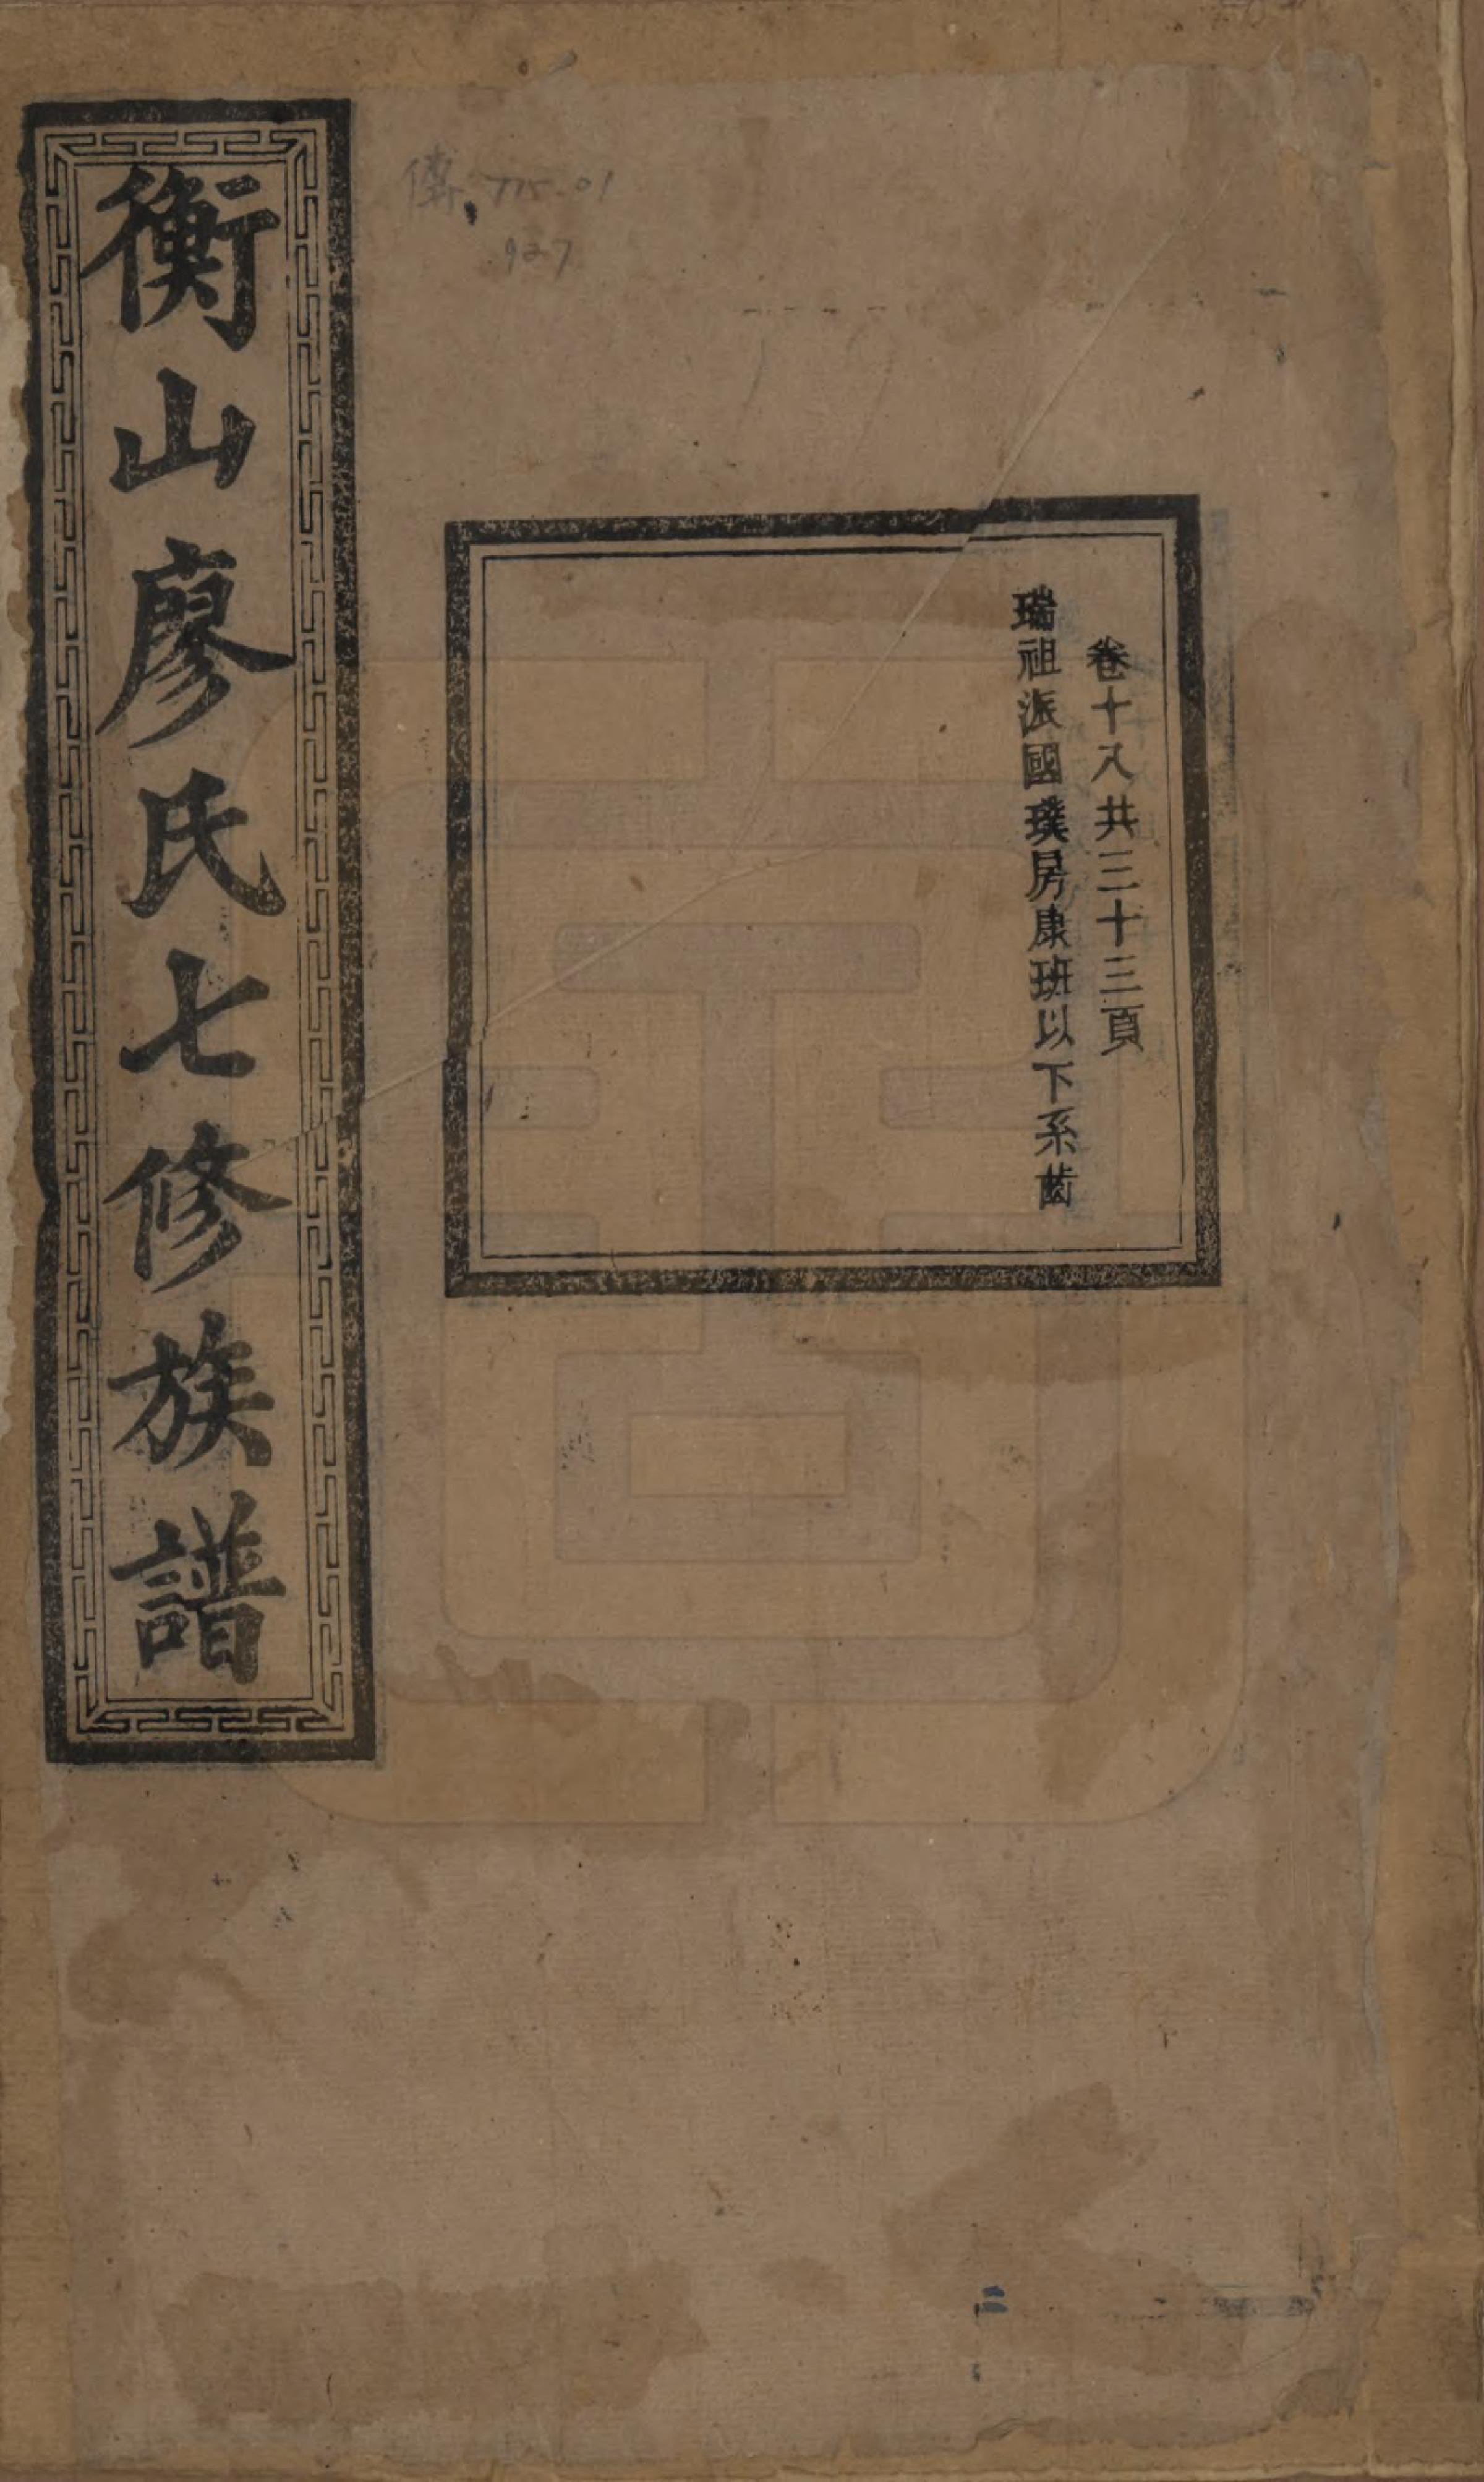 卷十八共三十三頁
瑞祖派國璞房康班以下系齒
衡山廖氏七修族譜
傳.775-01
927